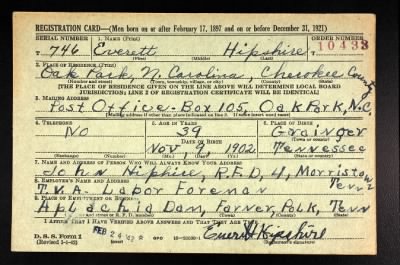 REGISTRATION CARD—(Men born on or after February 17, 1897 and on or before December 31, 1921)
SERIAL NUMBER 1. NAME (Print) ORDER NUMBER
T 746 Everett Hipshire 10433
(First) (Middle) (Last)
2. PLACE OF RESIDENCE (Print)
Oak Park, N. Carolina, Cherokee County
(Number and street) (Town, township, village, or city) (County) (State)
[THE PLACE OF RESIDENCE GIVEN ON THE LINE ABOVE WILL DETERMINE LOCAL BOARD
JURISDICTION; LINE 2 OF REGISTRATION CERTIFICATE WILL BE IDENTICAL]
3. MAILING ADDRESS
Post Office-Box 105, Oak Park, N.C.
[Mailing address if other than place indicated on line 2. If same insert word same]
4. TELEPHONE 5. AGE IN YEARS 6. PLACE OF BIRTH
No 39 Grainger
DATE OF BIRTH (Town or county)
Nov, 9, 1902 Tennessee
(Exchange) (Number) (Mo.) (Day) (Yr.) (State or country)
7. NAME AND ADDRESS OF PERSON WHO WILL ALWAYS KNOW YOUR ADDRESS
John Hipshire, R.F.D, 4, Morristown Tenn
8. EMPLOYER'S NAME AND ADDRESS
T.V.A. Labor Foreman
9. PLACE OF EMPLOYMENT OR BUSINESS
Aplachia Dam, Farner, Polk, Tenn
(Number and street or R. F. D. number) (Town) (County) (State)
I AFFIRM THAT I HAVE VERIFIED ABOVE ANSWERS AND THAT THEY ARE TRUE.
D. S. S. Form 1
(Revised 1-1-42) FEB 24 '42 GPO Everett Hipshire